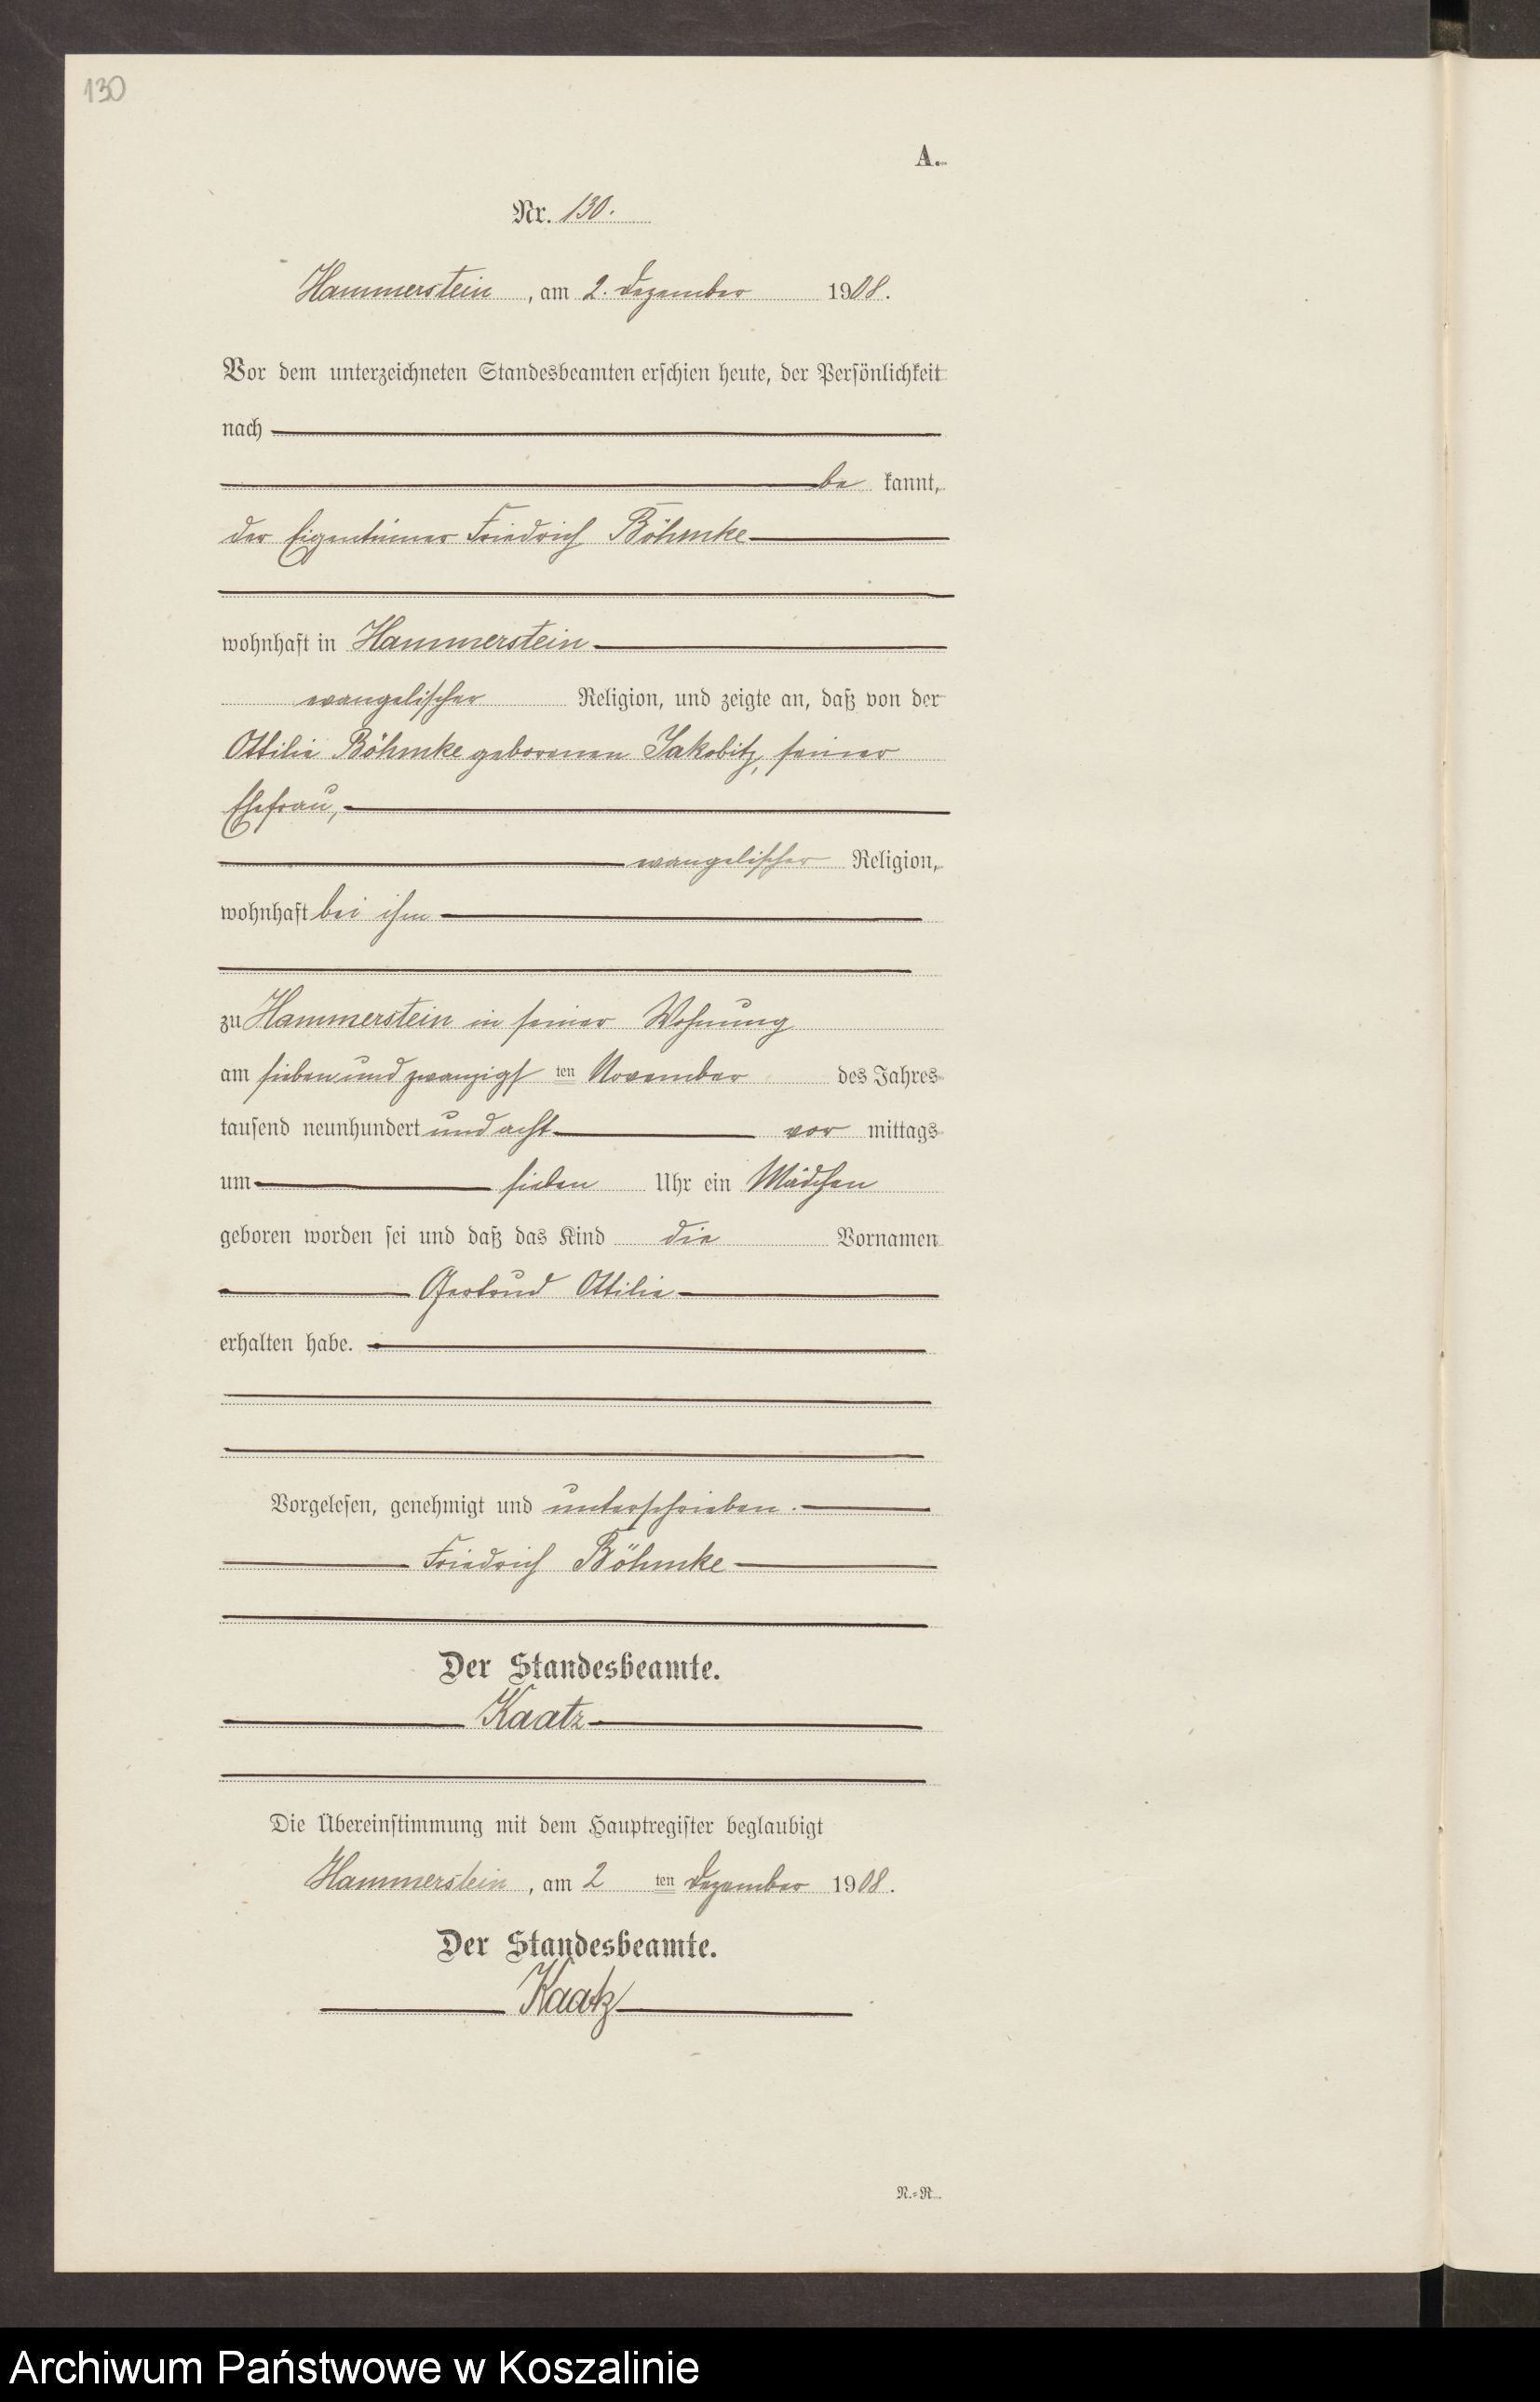 130
A.
Nr. 130.
Hammerstein, am 2. Dezember 1908.
Vor dem unterzeichneten Standesbeamten erschien heute, der Persönlichkeit
nach
be kannt,
der Eigentümer Friedrich Böhmke
wohnhaft in Hammerstein
evangelischer Religion, und zeigte an, daß von der
Ottilie Böhmke geborenen Jakobitz, seiner
Ehefrau,
evangelischer Religion,
wohnhaft bei ihm
zu Hammerstein in seiner Wohnung
am siebenundzwanzigsten November des Jahres
tausend neunhundert und acht vor mittags
um sieben Uhr ein Mädchen
geboren worden sei und daß das Kind die Vornamen
Gertrud Ottilie
erhalten habe.
Vorgelesen, genehmigt und unterschrieben.
Friedrich Böhmke
Der Standesbeamte.
Kaatz
Die Übereinstimmung mit dem Hauptregister beglaubigt
Hammerstein, am 2ten Dezember 1908.
Der Standesbeamte.
Kaatz
N.-R.
Archiwum Państwowe w Koszalinie